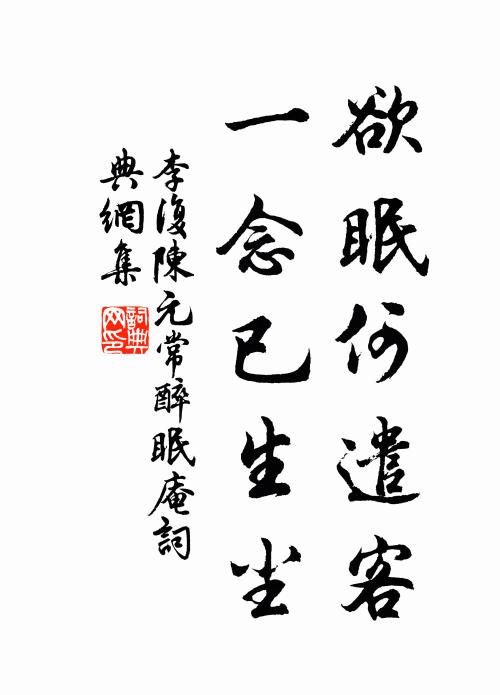 欲眠何遣客
一念已生尘
李復陳元常醉眠庵詞
典網集
詞典网印